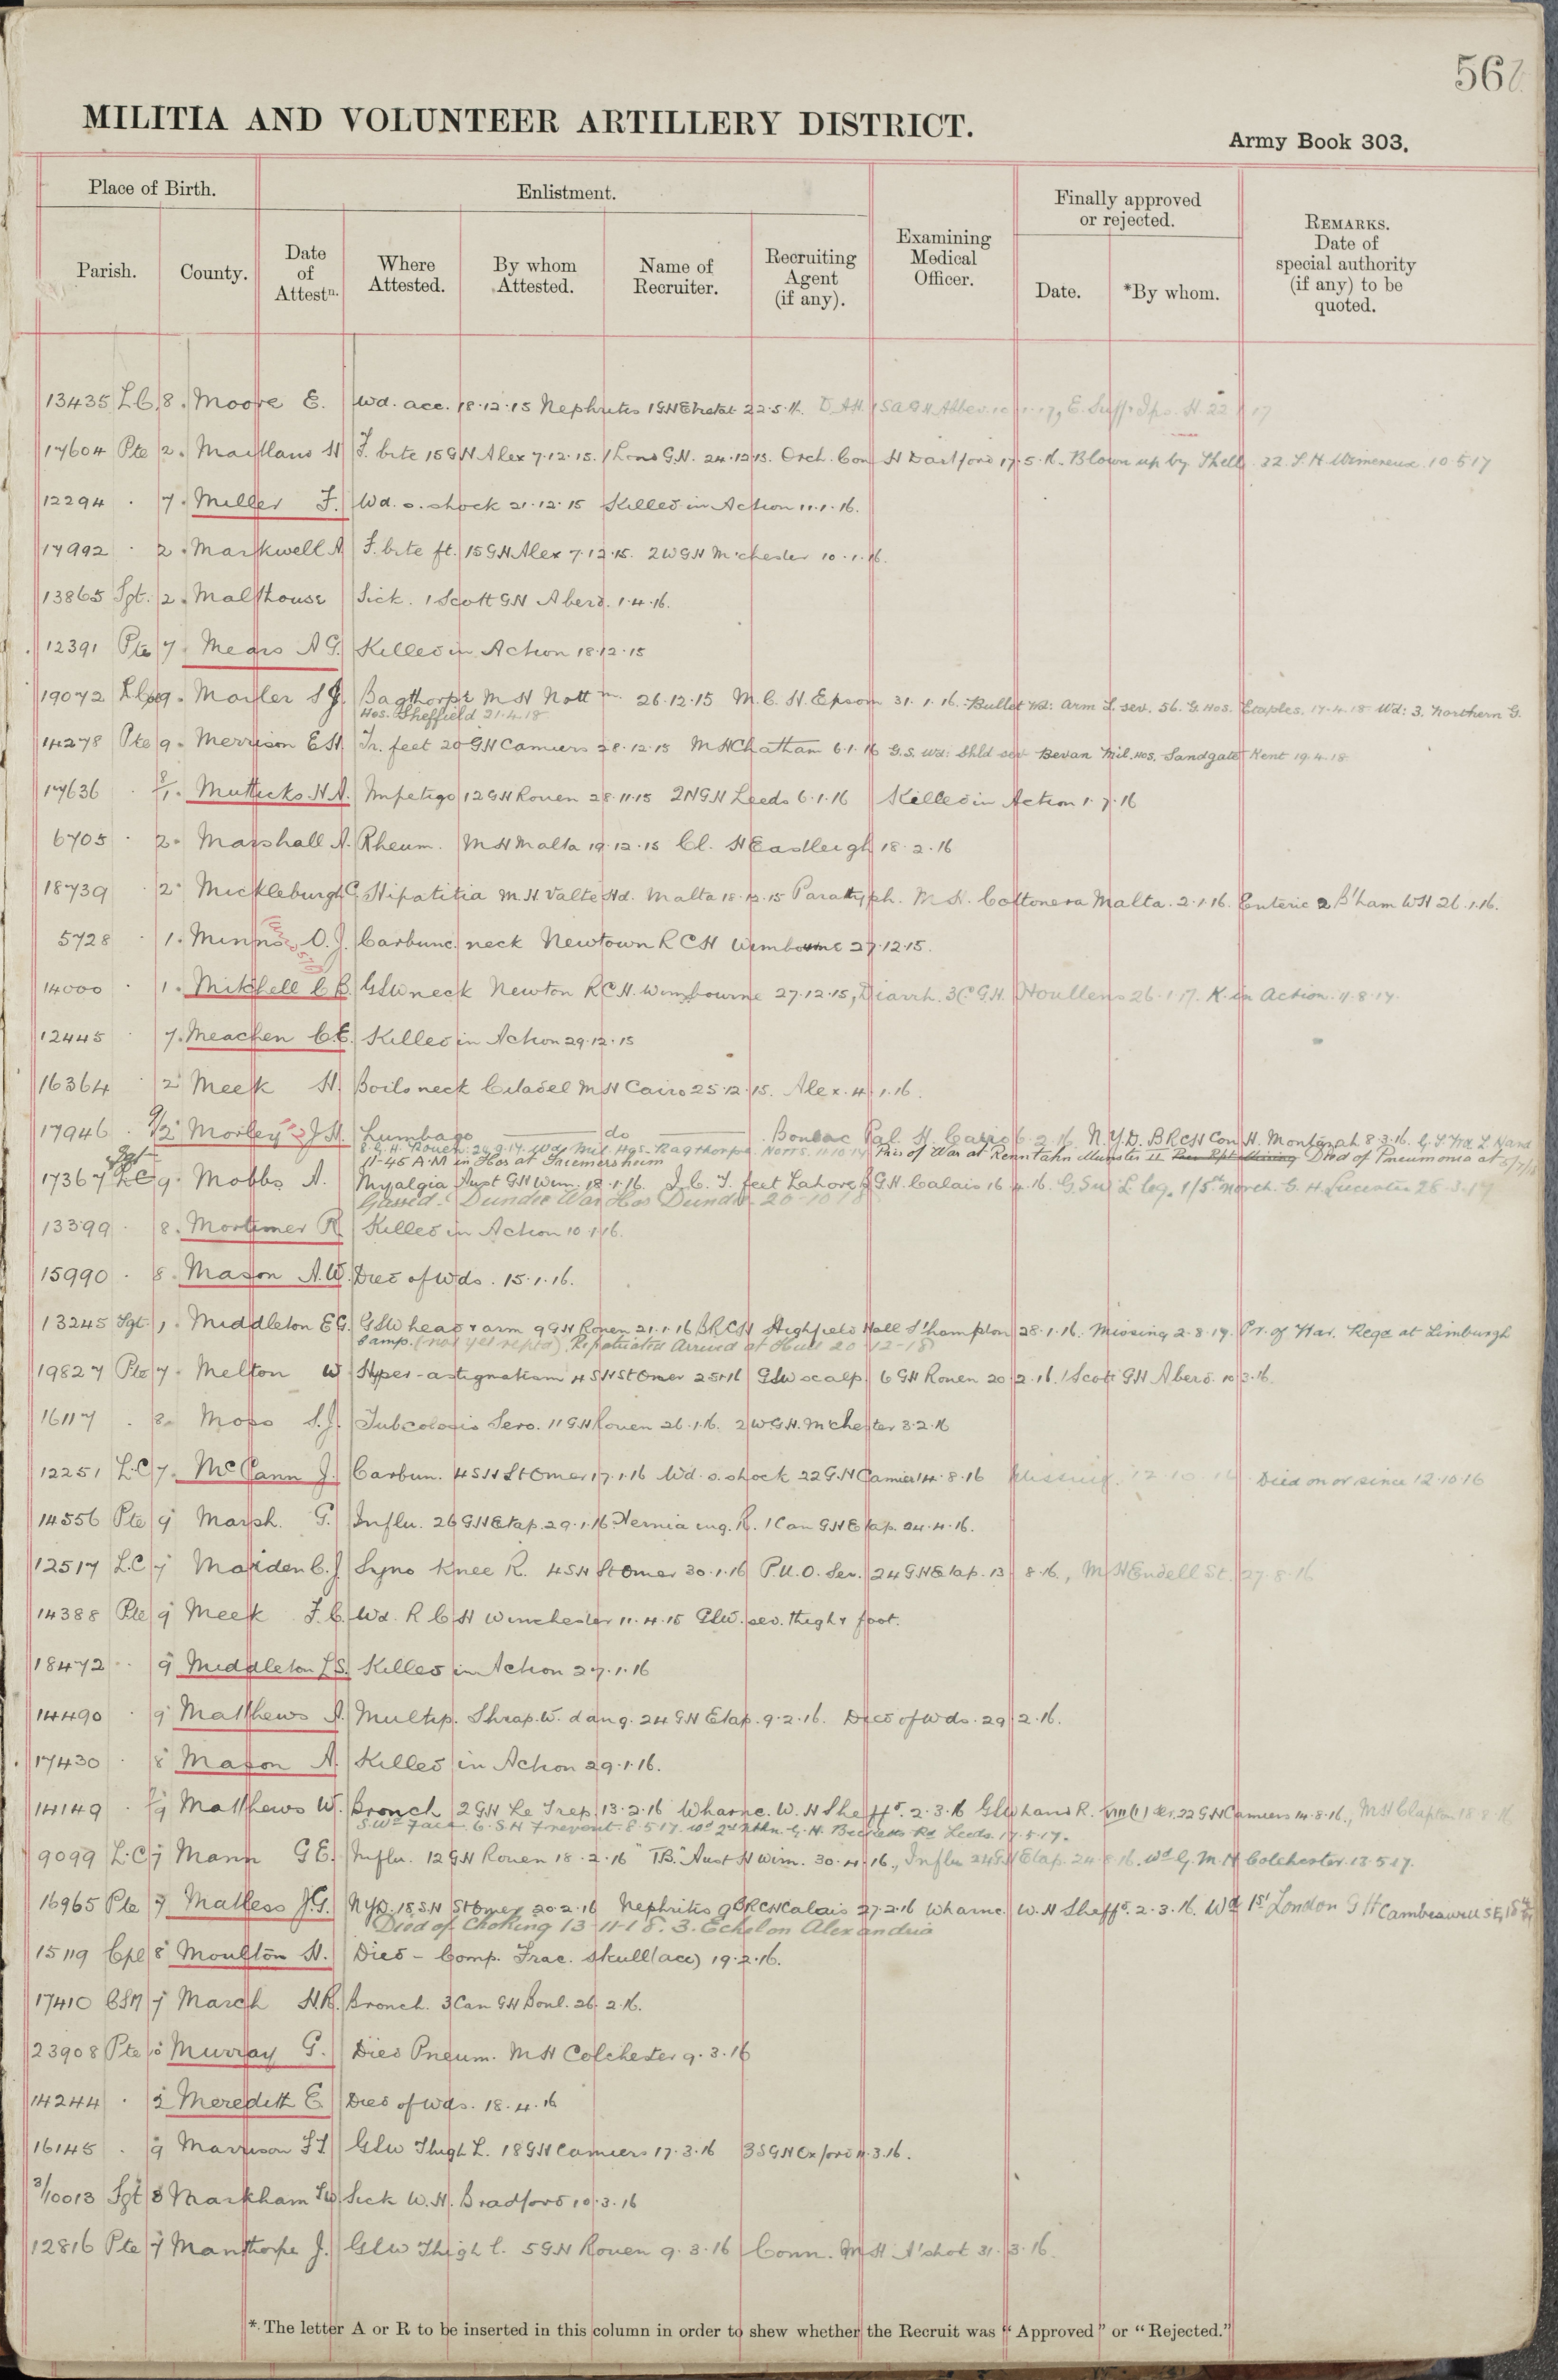 56
MILITIA AND VOLUNTEER ARTILLERY DISTRICT.
Army Book 303.
Place of Birth.
Enlistment.
Examining Medical Officer.
Finally approved or rejected.
REMARKS. Date of special authority (if any) to be quoted.
Parish.
County.
Date of Attestn.
Where Attested.
By whom Attested.
Name of Recruiter.
Recruiting Agent (if any).
Date.
*By whom.
13435 L.C. 8. Moore E. Wd. acc. 18.12.15 Nephritis 1 GH Etretat 22.5.16. D.A.H.
17604 Pte 2. Maitland H F. bite 15 GH Alex 7.12.15. 1 Lond G.H. 24.12.15. Orch. Con H Dartford 17.5.16. Blown up by Shell. 22. S.H. Wimereux. 10.5.17
12294 . 7. Miller F. Wd. s. shock 21.12.15 Killed in Action 11.1.16.
17992 . 2. Markwell A F. bite ft. 15 GH Alex 7.12.15. 2 W GH M'chester 10.1.16.
13865 Sgt. 2. Malthouse Sick. 1 Scott GH Aberd. 1.4.16.
12391 Pte 7. Mears A G. Killed in Action 18.12.15
19072 9. Marler S J. Bagthorpe M H Nottm 26.12.15 M. C. H. Epsom 31.1.16. Bullet Wd: Arm L. sev. 56. G. Hos. Etaples. 17-4-18 Wd: 3. Northern G.
Hos. Sheffield 21.4.18
14278 Pte 9. Merrison E H. Tr. feet 20 GH Camiers 28.12.15 M H Chatham 6.1.16 G.S. Wd: Shld sev Bevan Mil. Hos. Sandgate Kent 19.4.18
17636 . Mutticks H A. Impetigo 12 GH Rouen 28.11.15 2 N GH Leeds 6.1.16 Killed in Action 1.7.16
6705 . 2. Marshall A. Rheum. M H Malta 19.12.15 Cl. H Eastleigh 18.2.16
18739 . 2. Mickleburgh C. Hipatitia M. H. Valte Hd. Malta 18.12.15 Paratyph. M. H. Cottonera Malta. 2.1.16. Enteric 2 B'ham WH 26.1.16.
5728 . 1. Minns O. J. Carbunc. neck Newtown R C H Wimbourne 27.12.15.
14000 . 1. Mitchell C B. GSW neck Newton R C H. Wimbourne 27.12.15, Diarrh. G.H. 26.1.17. K. in Action.
12445 7. Meachen C. E. Killed in Action 29.12.15
16364 . 2 Meek H. Boils neck Citadel M H Cairo 25.12.15. Alex. 4.1.16.
17946 . 9/2 Morley J H. Lumbago do Bonlac Pal. H. Cairo 6.2.16. N.Y.D. BRCH Con H. Montazah 8.3.16.
Pris of War at Rennbahn Munster II Died of Pneumonia at
11-45 A.M in Hos at
17367 9. Mobbs A. Myalgia Aust GH Wim. 18.1.16. I. C. T. feet Lahore B. G. H. Calais 16.4.16. G.S.W. L. leg. 1/5th North. G. H. Leicester 28.3.17
Gassed. Dundee War Hos Dundee 20-10-18
13399 . 8. Mortimer R Killed in Action 10.1.16.
15990 . 8. Mason A. W. Died of Wds. 15.1.16.
13245 Sgt. 1. Middleton E G. GSW head & arm 9 GH Rouen 21.1.16 BRCH Highfield Hall S'hampton 28.1.16. Missing 2.8.17. Pr. of War. Regd at Limburgh
Camp. (not yet reptd). Repatriated Arrived at Hull 20-12-18
19827 Pte 7. Melton W Hyper-astigmatism 4 SH St Omer 25.1.16 GSW scalp. 6 GH Rouen 20.2.16. 1 Scott GH Aberd. 10.3.16.
16117 . 8. Moss S. J. Tubcolosis Sero. 11 GH Rouen 26.1.16. 2 W G.H. M'chester 3.2.16
12251 L.C 7. McCann J. Carbun. 4 SH St Omer 17.1.16 Wd. s. shock 22 G.H Camier 14.8.16 Missing. 12.10.16 Died on or since 12.10.16
14556 Pte 9 Marsh. G. Influ. 26 GH Etap. 29.1.16. Hernia ing. R. 1 Can GH Etap. 24.4.16.
12517 L.C 7 Marden C. J. Syno Knee R. 4 SH St Omer 30.1.16 P.U.O. Sev. 24 GH Etap. 13.8.16., M H Endell St. 27.8.16
14388 Pte 9 Meek F. C. Wd. R C H Winchester 11.4.15 GSW. sev. thigh & foot.
18472 . 9 Middleton L S. Killed in Action 27.1.16
14490 . 9 Matthews A. Multip. Shrap. W. dang. 24 GH Etap. 9.2.16. Died of Wds. 29.2.16.
17430 . 8 Mason A. Killed in Action 29.1.16.
14149 . Matthews W. Bronch 2 GH Le Trep. 13.2.16 Wharnc. W. H Sheffd. 2.3.16 GSW hand R. 22 GH Camiers 14.8.16., M H Clapton 18.8.16
S. Wd Face. 6. S. H Frevent. 8.5.17. Leeds. 17.5.17.
9099 L.C 7 Mann G E. Influ. 12 GH Rouen 18.2.16 "T.B." Aust H Wim. 30.4.16., Influ 24 GH Etap. 24.8.16. Wd G. M. H Colchester. 13.5.17.
16965 Pte 7 Matless J. G. NYD. 18 S.H St Omer 20.2.16 Nephritis 9 BRCH Calais 27.2.16 Wharnc. W. H Sheffd. 2.3.16. Wd 1st London G H Camberwell SE,
Died of Choking 13-11-18. 3. Echelon Alexandria
15119 Cpl 8 Moulton H. Died - Comp. Frac. Skull (acc) 19.2.16.
17410 CSM 7 March H. R. Bronch. 3 Can GH Boul. 26.2.16.
23908 Pte 10 Murray G. Died Pneum. M H Colchester 9.3.16
14244 . 2 Meredith E. Died of Wds. 18.4.16
16145 . 9 Marrison F J GSW Thigh L. 18 GH Camiers 17.3.16 3 S GH Oxford 11.3.16.
3/10013 Sgt 8 Markham Sick W. H. Bradford 10.3.16
12816 Pte 7 Manthorpe J. GSW Thigh L. 5 GH Rouen 9.3.16 Conn. M H A'shot 31.3.16.
*The letter A or R to be inserted in this column in order to shew whether the Recruit was "Approved" or "Rejected."